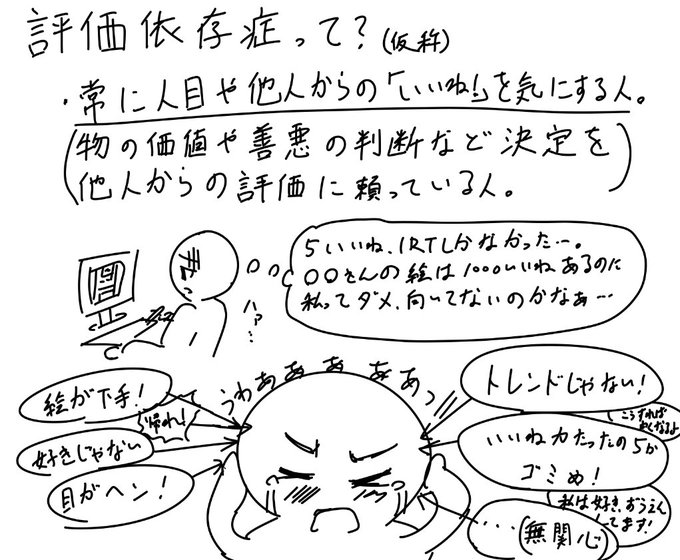 評価依存症って?(仮称)
・常に人目や他人からの「いいね!」を気にする人。
(物の価値や善悪の判断など決定を
他人からの評価に頼っている人。)
5いいね、1RTしかなかった…。
〇〇さんの絵は1000いいねあるのに
私ってダメ、向いてないのかなぁ…
ハァ…
うわあああああっ
絵が下手!
帰れ!
好きじゃない
目がヘン!
トレンドじゃない!
こうすれば
よくなるよ
いいねがたったの5か
ゴミめ!
私は好き、おうえん
してます!
…(無関心)